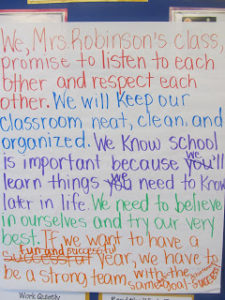 We, Mrs. Robinson's class,
promise to listen to each
other and respect each
other. We will keep our
classroom neat, clean, and
organized. We know school
is important because we'll
learn things we need to know
later in life. We need to believe
in ourselves and try our very
best. If we want to have a
fun and successful
year, we have to
be a strong team with the
same goal:
success
Work Quietly